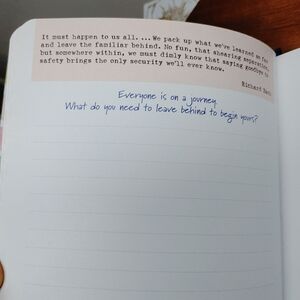 It must happen to us all. ... We pack up what we've learned so far
and leave the familiar behind. No fun, that shearing separation,
but somewhere within, we must dimly know that saying goodbye to
safety brings the only security we'll ever know.
Richard Bach
Everyone is on a journey.
What do you need to leave behind to begin yours?